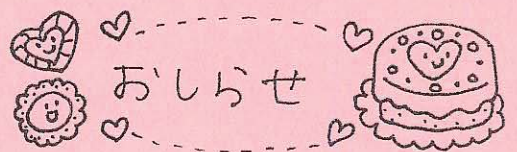 おしらせ